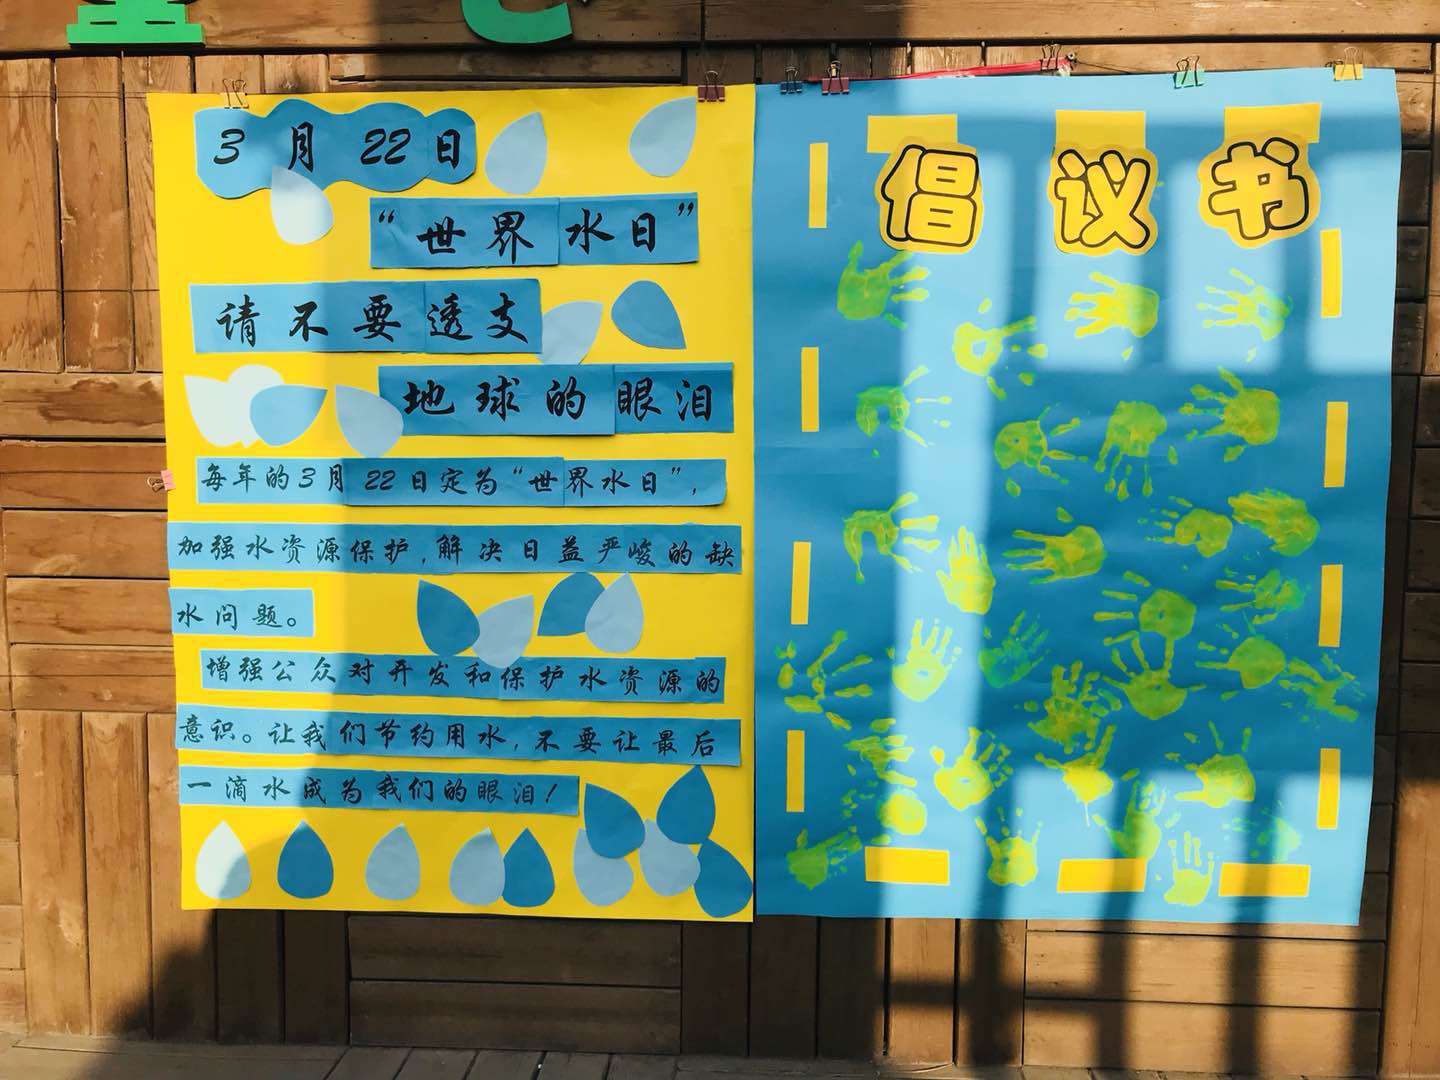 3月22日
“世界水日”
请不要透支
地球的眼泪
每年的3月22日定为“世界水日”，
加强水资源保护，解决日益严峻的缺
水问题。
增强公众对开发和保护水资源的
意识。让我们节约用水，不要让最后
一滴水成为我们的眼泪！
倡议书